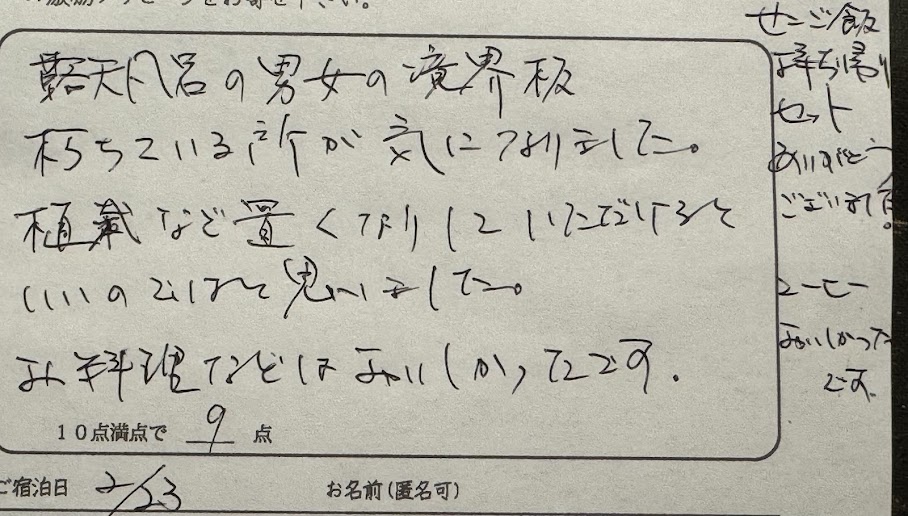 メッセージをお寄せ下さい。
露天風呂の男女の境界板
朽ちている所が気になりました。
植栽など置くなりしていただけると
いいのではと思いました。
お料理などはおいしかったです.
10点満点で 9 点
ご宿泊日 2/23
お名前(匿名可)
せーご飯
お持ち帰り
セット
ありがとう
ございました。
コーヒー
おいしかった
です.